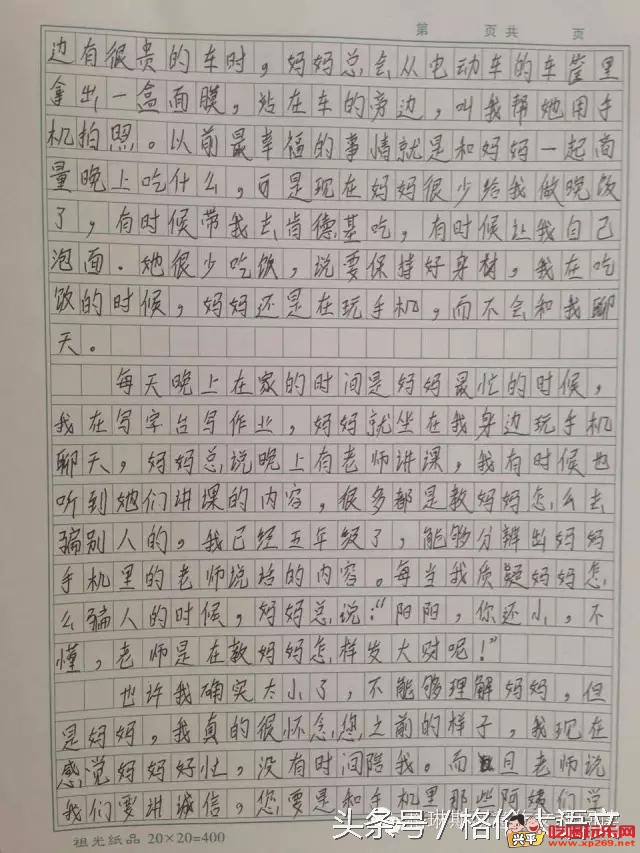 第 页共 页
边有很贵的车时，妈妈总会从电动车的车筐里
拿出一盒面膜，站在车的旁边，叫我帮她用手
机拍照。以前最幸福的事情就是和妈妈一起商
量晚上吃什么，可是现在妈妈很少给我做晚饭
了，有时候带我去肯德基吃，有时候让我自己
泡面。她很少吃饭，说要保持好身材，我在吃
饭的时候，妈妈还是在玩手机，而不会和我聊
天。
每天晚上在家的时间是妈妈最忙的时候，
我在写字台写作业，妈妈就坐在我身边玩手机
聊天，妈妈总说晚上有老师讲课，我有时候也
听到她们讲课的内容，很多都是教妈妈怎么去
骗别人的，我已经五年级了，能够分辨出妈妈
手机里的老师说话的内容。每当我质疑妈妈怎
么骗人的时候，妈妈总说：“阳阳，你还小，不
懂，老师是在教妈妈怎样发大财呢！”
也许我确实太小了，不能够理解妈妈，但
是妈妈，我真的很怀念您之前的样子，我现在
感觉妈妈好忙，没有时间陪我。而且老师说
我们要讲诚信，您要是和手机里那些阿姨们学
祖光纸品 20×20=400
头条号／格伦卡语文
兴平
吃喝玩乐网
www.xp269.net